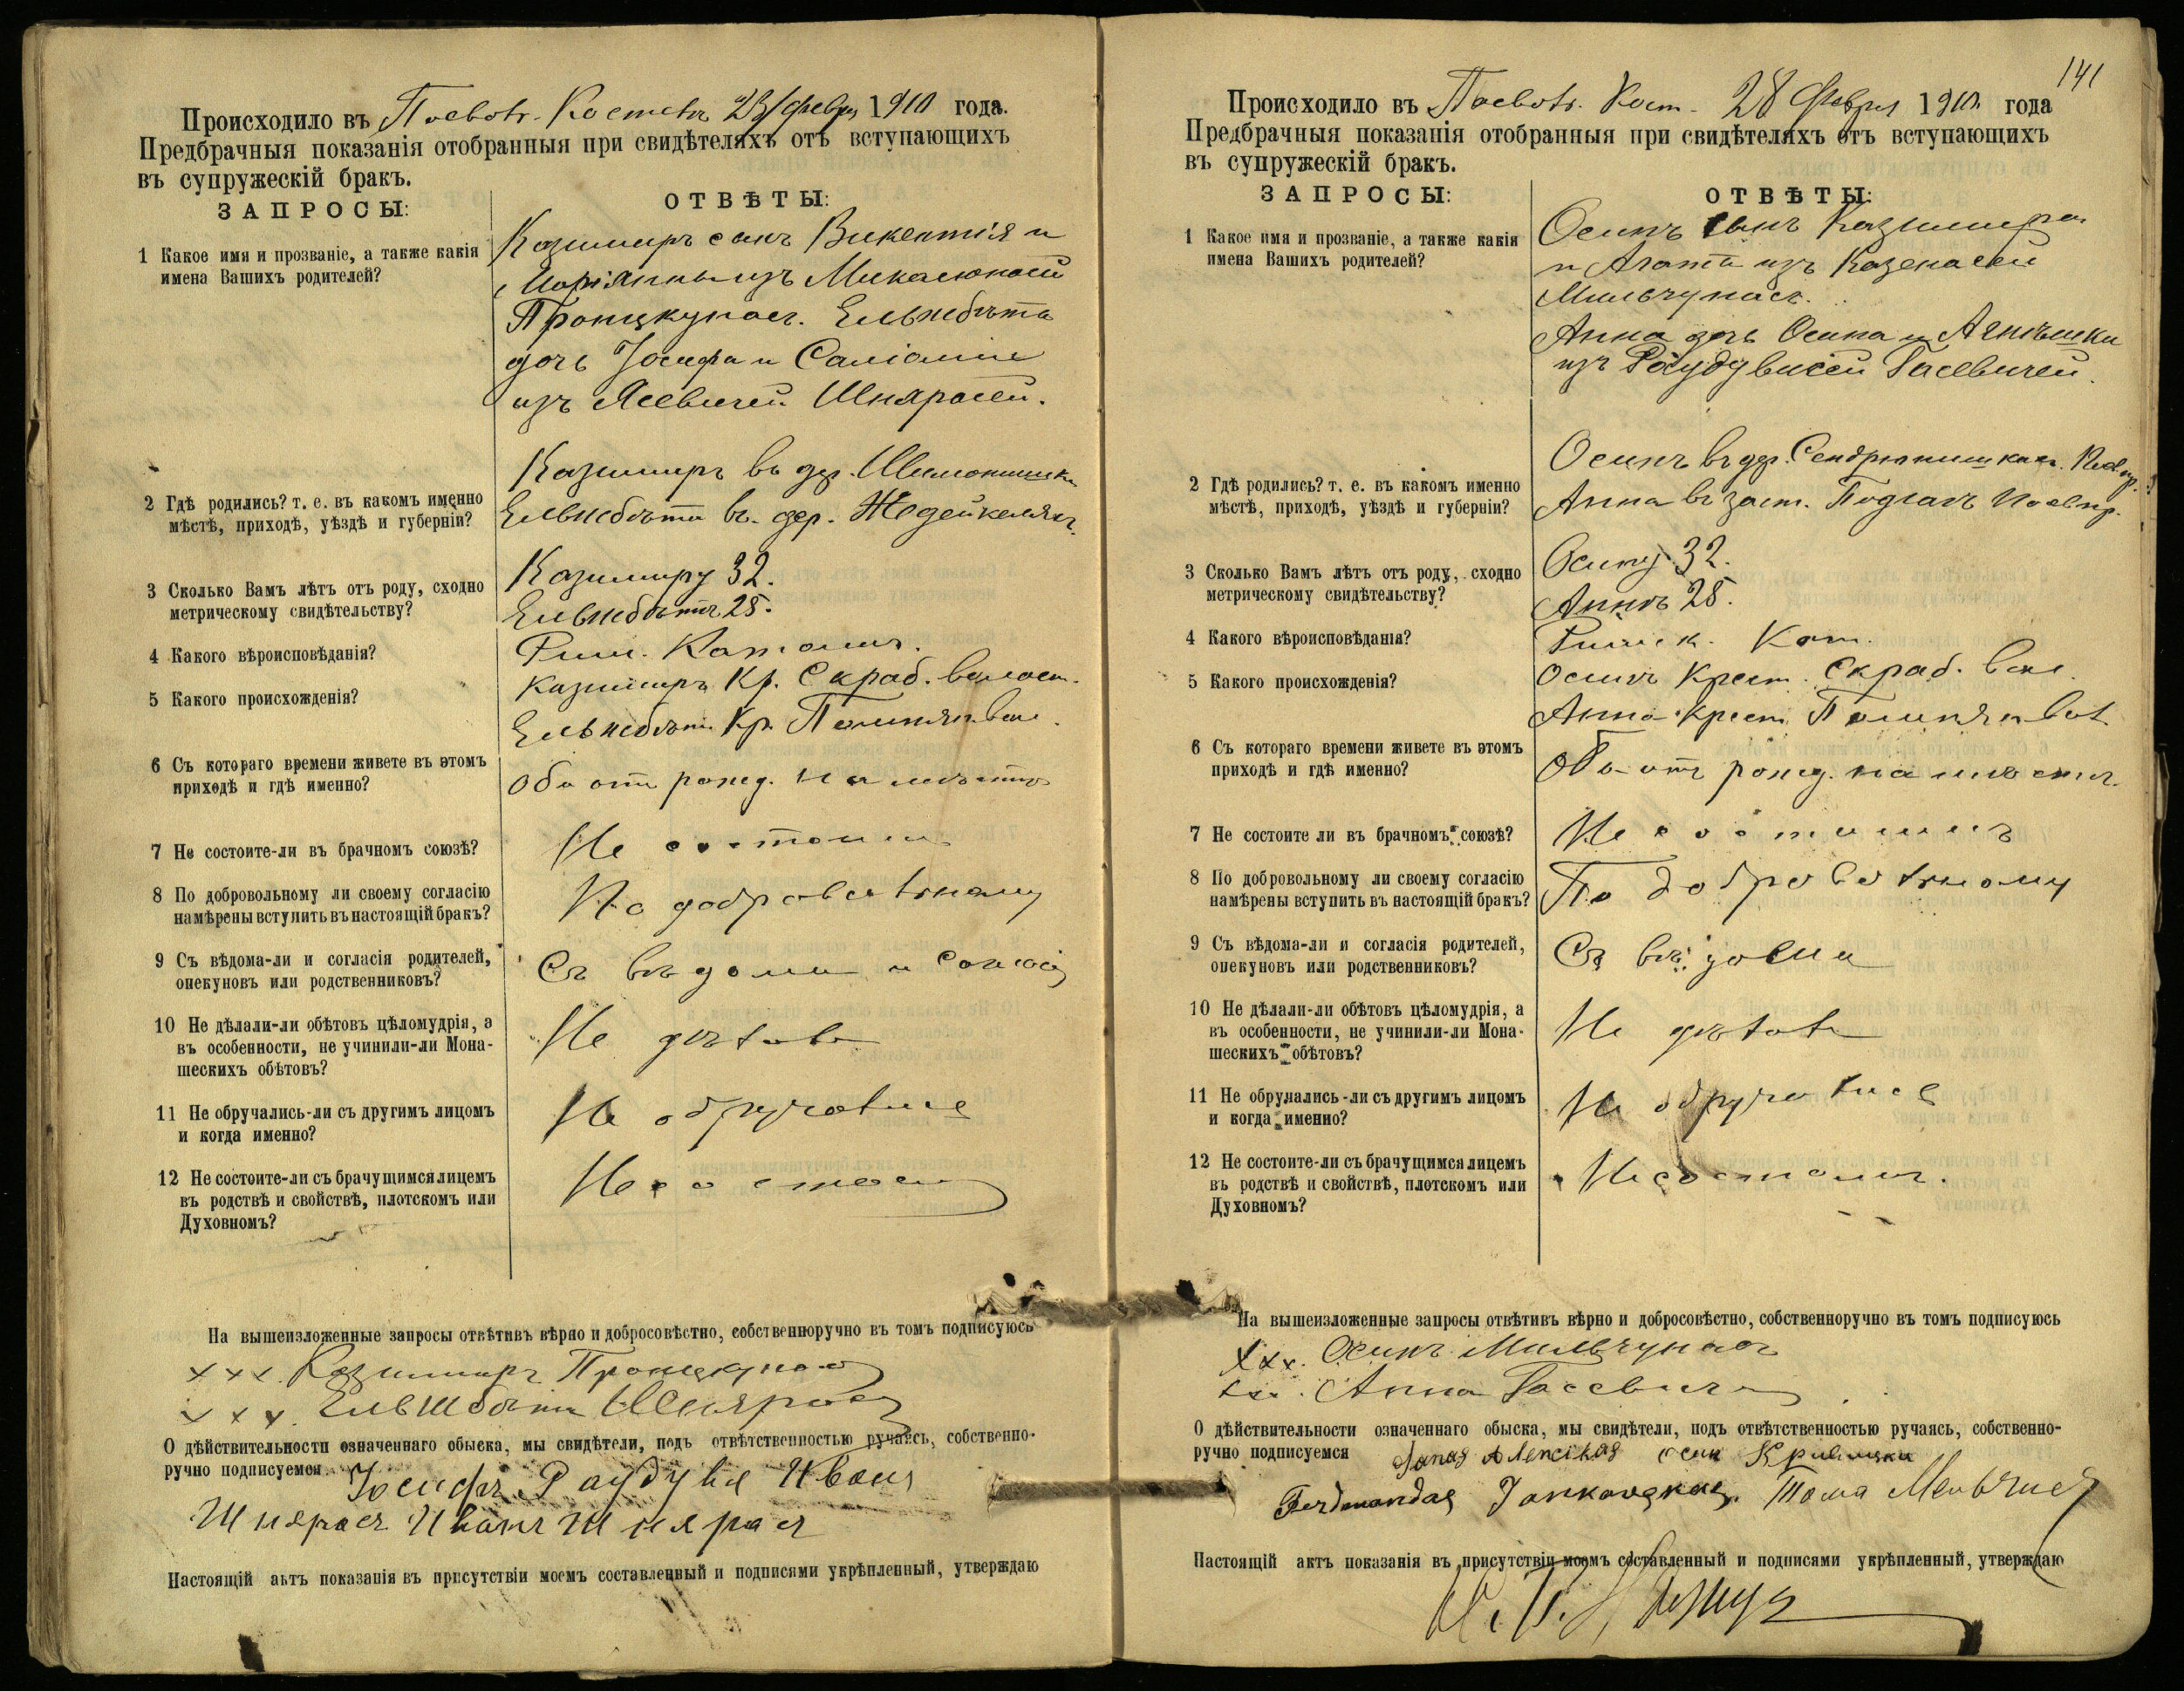 Происходило въ Поевол. Костелъ 23 февр 1910 года.
Предбрачныя показанія отобранныя при свидѣтеляхъ отъ вступающихъ
въ супружескій бракъ.
ЗАПРОСЫ:
ОТВѢТЫ:
1 Какое имя и прозваніе, а также какія
имена Вашихъ родителей?
Казимиръ сынъ Викентія и
Маріянны изъ
Ельжбѣта
дочь Іосифа и Саломіи
изъ Ясевичей Шняросъ.
2 Гдѣ родились? т. е. въ какомъ именно
мѣстѣ, приходѣ, уѣздѣ и губерніи?
Казимиръ въ дер.
Ельжбѣта въ дер.
3 Сколько Вамъ лѣтъ отъ роду, сходно
метрическому свидѣтельству?
Казимиру 32.
Ельжбѣтѣ 25.
4 Какого вѣроисповѣданія?
Рим. Катол.
5 Какого происхожденія?
Казимиръ Кр. Скраб. волост.
Ельжбѣта Кр.
6 Съ котораго времени живете въ этомъ
приходѣ и гдѣ именно?
Оба отъ рожд. на мѣстѣ
7 Не состоите-ли въ брачномъ союзѣ?
Не состоимъ
8 По добровольному ли своему согласію
намѣрены вступить въ настоящій бракъ?
По добровольному
9 Съ вѣдома-ли и согласія родителей,
опекуновъ или родственниковъ?
Съ вѣдома и
10 Не дѣлали-ли обѣтовъ цѣломудрія, а
въ особенности, не учинили-ли Мона-
шескихъ обѣтовъ?
Не дѣлали
11 Не обручались-ли съ другимъ лицомъ
и когда именно?
Не обручались
12 Не состоите-ли съ брачущимся лицемъ
въ родствѣ и свойствѣ, плотскомъ или
Духовномъ?
Не состоимъ
На вышеизложенные запросы отвѣтивъ вѣрно и добросовѣстно, собственноручно въ томъ подписуюсь
xxx. Казимиръ
xxx. Ельжбѣта Шняросъ
О дѣйствительности означеннаго обыска, мы свидѣтели, подъ отвѣтственностью ручаясь, собственно-
ручно подписуемся
Іосифъ Раудувя Иванъ
Шнярасъ Иванъ Шнярас
Настоящій актъ показанія въ присутствіи моемъ составленный и подписями укрѣпленный, утверждаю
141
Происходило въ Поевол. Кост. 28 Февраля 1910 года
Предбрачныя показанія отобранныя при свидѣтеляхъ отъ вступающихъ
въ супружескій бракъ.
ЗАПРОСЫ:
ОТВѢТЫ:
1 Какое имя и прозваніе, а также какія
имена Вашихъ родителей?
Осипъ сынъ Казимира
и Агаты изъ
Мильчунасъ.
Анна дочь Осипа и Агнѣшки
изъ
2 Гдѣ родились? т. е. въ какомъ именно
мѣстѣ, приходѣ, уѣздѣ и губерніи?
Осипъ въ дер.
Анна въ заст.
3 Сколько Вамъ лѣтъ отъ роду, сходно
метрическому свидѣтельству?
Осипу 32.
Аннѣ 28.
4 Какого вѣроисповѣданія?
Римск. Кат.
5 Какого происхожденія?
Осипъ Крест. Скраб. вол.
Анна Крест.
6 Съ котораго времени живете въ этомъ
приходѣ и гдѣ именно?
Оба отъ рожд. на мѣстѣ.
7 Не состоите ли въ брачномъ союзѣ?
Не состоимъ
8 По добровольному ли своему согласію
намѣрены вступить въ настоящій бракъ?
По добровольному
9 Съ вѣдома-ли и согласія родителей,
опекуновъ или родственниковъ?
Съ вѣдома
10 Не дѣлали-ли обѣтовъ цѣломудрія, а
въ особенности, не учинили-ли Мона-
шескихъ обѣтовъ?
Не дѣлали
11 Не обручались-ли съ другимъ лицомъ
и когда именно?
Не обручались
12 Не состоите-ли съ брачущимся лицемъ
въ родствѣ и свойствѣ, плотскомъ или
Духовномъ?
Не состоимъ.
На вышеизложенные запросы отвѣтивъ вѣрно и добросовѣстно, собственноручно въ томъ подписуюсь
xxx. Осипъ Мильчунасъ
xxx. Анна
О дѣйствительности означеннаго обыска, мы свидѣтели, подъ отвѣтственностью ручаясь, собственно-
ручно подписуемся
Ferdinandas Jankauskas. Тома
Настоящій актъ показанія въ присутствіи моемъ составленный и подписями укрѣпленный, утверждаю